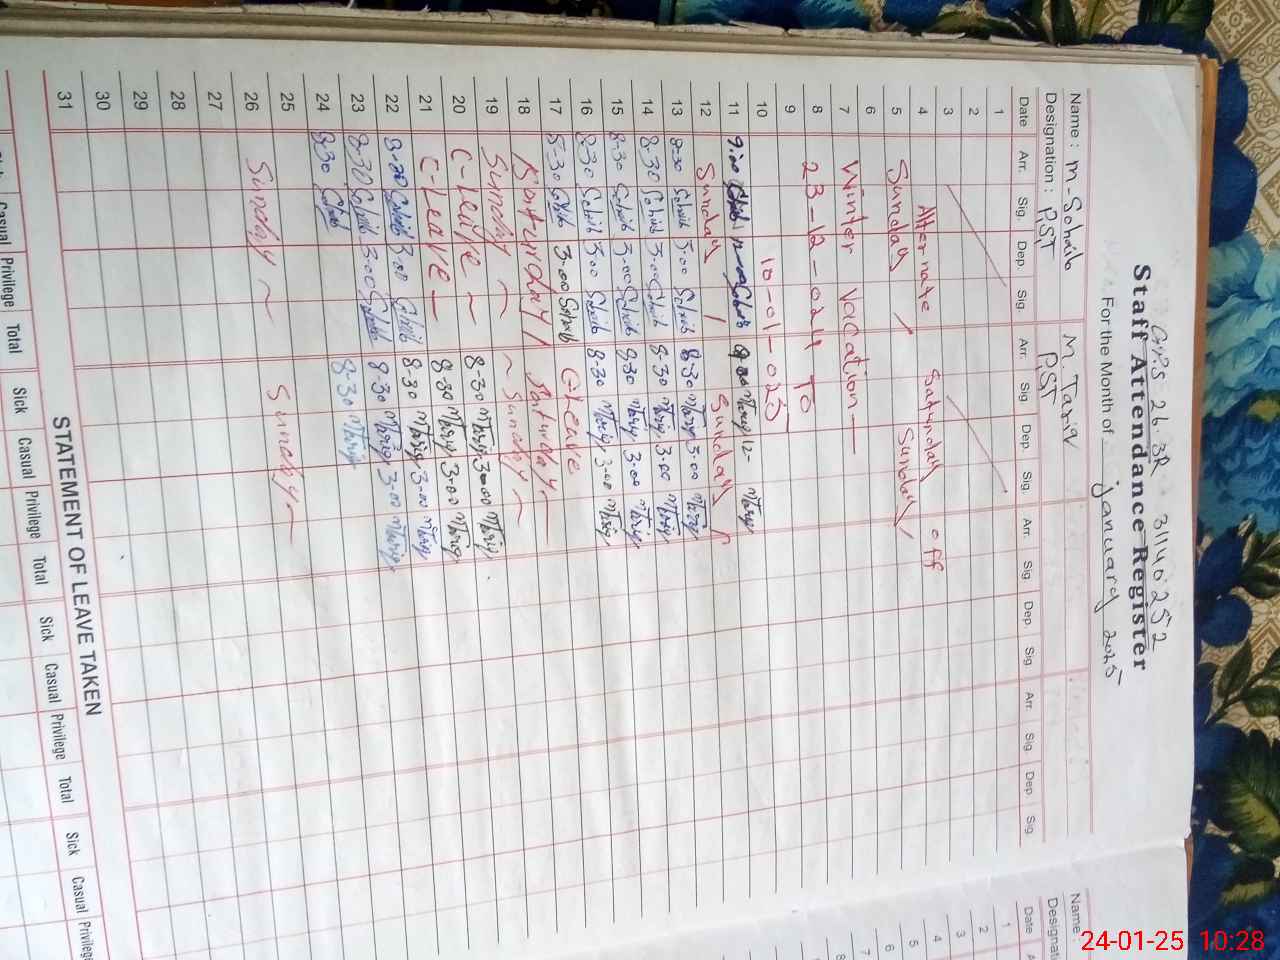 GPS 26-3R 31140252
Staff Attendance Register
For the Month of january 2025
Name : M-Sohaib M. Tariq
Designation : PST PST
Date Arr. Sig. Dep. Sig. Arr. Sig. Dep. Sig. Arr. Sig. Dep. Sig. Arr. Sig. Dep. Sig.
1
2
3
4 Alternate Saturday off
5 Sunday Sunday
6
7 Winter Vacation
8 23-12-024 To
9 10-01-025
10
11 9:00 Sohaib Sohaib Tariq 12- Tariq
12 Sunday Sunday
13 8-30 Sohaib 3-00 Sohaib 8-30 Tariq 3-00 Tariq
14 8-30 Sohaib 3-00 Sohaib 8-30 Tariq 3-00 Tariq
15 8-30 Sohaib 3-00 Sohaib 8-30 Tariq 3-00 Tariq
16 8-30 Sohaib 3-00 Sohaib 8-30 Tariq 3-00 Tariq
17 8-30 Sohaib 3-00 Sohaib C-Leave
18 Saturday
19 Sunday Sunday
20 C-Leave 8-30 Tariq 3-00 Tariq
21 C-Leave 8-30 Tariq 3-00 Tariq
22 8-30 Sohaib 3-00 Sohaib 8-30 Tariq 3-00 Tariq
23 8-30 Sohaib 3-00 Sohaib 8-30 Tariq 3-00 Tariq
24 8-30 Sohaib 8-30 Tariq
25
26 Sunday Sunday
27
28
29
30
31
STATEMENT OF LEAVE TAKEN
Casual Privilege Total Sick Casual Privilege Total Sick Casual Privilege Total Sick Casual Privilege
Name
Date
1
2
3
4
5
6
7
8
24-01-25 10:28